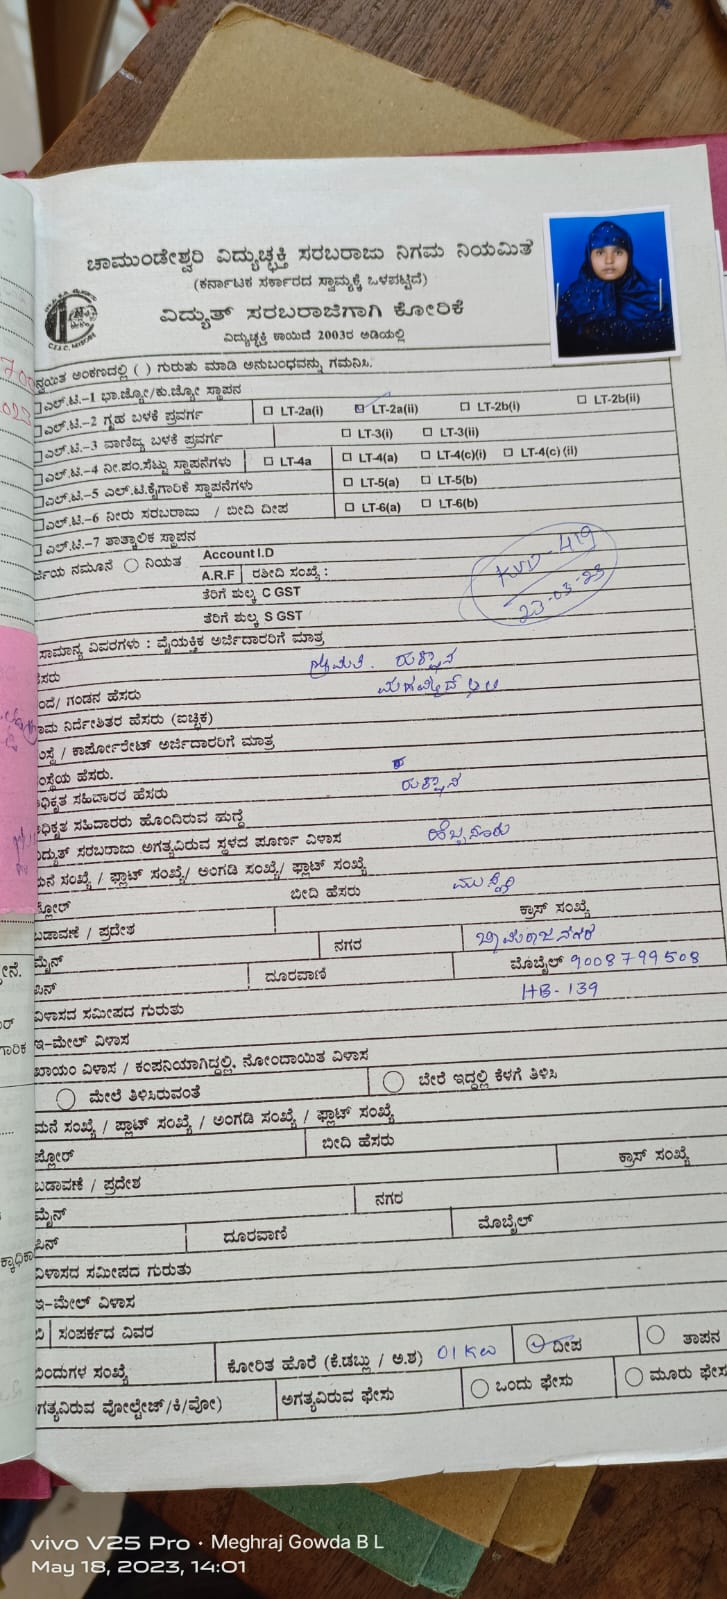 ಚಾಮುಂಡೇಶ್ವರಿ ವಿದ್ಯುಚ್ಛಕ್ತಿ ಸರಬರಾಜು ನಿಗಮ ನಿಯಮಿತ
(ಕರ್ನಾಟಕ ಸರ್ಕಾರದ ಸ್ವಾಮ್ಯಕ್ಕೆ ಒಳಪಟ್ಟಿದೆ)
ವಿದ್ಯುತ್ ಸರಬರಾಜಿಗಾಗಿ ಕೋರಿಕೆ
ವಿದ್ಯುಚ್ಛಕ್ತಿ ಕಾಯಿದೆ 2003ರ ಅಡಿಯಲ್ಲಿ
ನ್ವಯಿತ ಅಂಕಣದಲ್ಲಿ ( ) ಗುರುತು ಮಾಡಿ ಅನುಬಂಧವನ್ನು ಗಮನಿಸಿ.
ಎಲ್.ಟಿ.-1 ಭಾ.ಜ್ಯೋ/ಕು.ಜ್ಯೋ ಸ್ಥಾಪನ
ಎಲ್.ಟಿ.-2 ಗೃಹ ಬಳಕೆ ಪ್ರವರ್ಗ LT-2a(i) LT-2a(ii) LT-2b(i) LT-2b(ii)
ಎಲ್.ಟಿ.-3 ವಾಣಿಜ್ಯ ಬಳಕೆ ಪ್ರವರ್ಗ LT-3(i) LT-3(ii)
ಎಲ್.ಟಿ.-4 ನೀ.ಪಂ.ಸೆಟ್ಟು ಸ್ಥಾಪನೆಗಳು LT-4a LT-4(a) LT-4(c)(i) LT-4(c) (ii)
ಎಲ್.ಟಿ.-5 ಎಲ್.ಟಿ.ಕೈಗಾರಿಕೆ ಸ್ಥಾಪನೆಗಳು LT-5(a) LT-5(b)
ಎಲ್.ಟಿ.-6 ನೀರು ಸರಬರಾಜು / ಬೀದಿ ದೀಪ LT-6(a) LT-6(b)
ಎಲ್.ಟಿ.-7 ತಾತ್ಕಾಲಿಕ ಸ್ಥಾಪನ
ರ್ಜಿಯ ನಮೂನೆ ನಿಯತ Account I.D
A.R.F ರಶೀದಿ ಸಂಖ್ಯೆ :
ತೆರಿಗೆ ಶುಲ್ಕ C GST
ತೆರಿಗೆ ಶುಲ್ಕ S GST
KVD-419
23-03-23
ಸಾಮಾನ್ಯ ವಿವರಗಳು : ವೈಯಕ್ತಿಕ ಅರ್ಜಿದಾರರಿಗೆ ಮಾತ್ರ
ಸರು ಶ್ರೀಮತಿ. ರುಕ್ಸಾನ
ಂದೆ/ ಗಂಡನ ಹೆಸರು
ಾಮ ನಿರ್ದೇಶಿತರ ಹೆಸರು (ಐಚ್ಛಿಕ)
ಂಸ್ಥೆ / ಕಾರ್ಪೋರೇಟ್ ಅರ್ಜಿದಾರರಿಗೆ ಮಾತ್ರ
ಂಸ್ಥೆಯ ಹೆಸರು.
ಧಿಕೃತ ಸಹಿದಾರರ ಹೆಸರು ರುಕ್ಸಾನ
ಧಿಕೃತ ಸಹಿದಾರರು ಹೊಂದಿರುವ ಹುದ್ದೆ
ದ್ಯುತ್ ಸರಬರಾಜು ಅಗತ್ಯವಿರುವ ಸ್ಥಳದ ಪೂರ್ಣ ವಿಳಾಸ ಹೆಬ್ಬಸೂರು
ಮನೆ ಸಂಖ್ಯೆ / ಫ್ಲಾಟ್ ಸಂಖ್ಯೆ/ ಅಂಗಡಿ ಸಂಖ್ಯೆ/ ಫ್ಲಾಟ್ ಸಂಖ್ಯೆ
ಫ್ಲೋರ್ ಬೀದಿ ಹೆಸರು ಮುಸ್ಲಿಂ
ಬಡಾವಣೆ / ಪ್ರದೇಶ ಕ್ರಾಸ್ ಸಂಖ್ಯೆ
ಮೈನ್ ನಗರ ಚಾಮರಾಜನಗರ
ಪಿನ್ ದೂರವಾಣಿ ಮೊಬೈಲ್ 9008799508
ವಿಳಾಸದ ಸಮೀಪದ ಗುರುತು HB-139
ಇ-ಮೇಲ್ ವಿಳಾಸ
ಖಾಯಂ ವಿಳಾಸ / ಕಂಪನಿಯಾಗಿದ್ದಲ್ಲಿ, ನೋಂದಾಯಿತ ವಿಳಾಸ
ಮೇಲೆ ತಿಳಿಸಿರುವಂತೆ ಬೇರೆ ಇದ್ದಲ್ಲಿ ಕೆಳಗೆ ತಿಳಿಸಿ
ಮನೆ ಸಂಖ್ಯೆ / ಪ್ಲಾಟ್ ಸಂಖ್ಯೆ / ಅಂಗಡಿ ಸಂಖ್ಯೆ / ಫ್ಲಾಟ್ ಸಂಖ್ಯೆ
ಫ್ಲೋರ್ ಬೀದಿ ಹೆಸರು
ಬಡಾವಣೆ / ಪ್ರದೇಶ ಕ್ರಾಸ್ ಸಂಖ್ಯೆ
ಮೈನ್ ನಗರ
ಪಿನ್ ದೂರವಾಣಿ ಮೊಬೈಲ್
ವಿಳಾಸದ ಸಮೀಪದ ಗುರುತು
ಇ-ಮೇಲ್ ವಿಳಾಸ
ಸಂಪರ್ಕದ ವಿವರ
ಬಿಂದುಗಳ ಸಂಖ್ಯೆ ಕೋರಿತ ಹೊರೆ (ಕಿ.ಡಬ್ಲು / ಅ.ಶ) 01 KW ದೀಪ ತಾಪನ
ಗತ್ಯವಿರುವ ವೋಲ್ಟೇಜ್/ಕಿ/ವೋ) ಅಗತ್ಯವಿರುವ ಫೇಸು ಒಂದು ಫೇಸು ಮೂರು ಫೇಸ
vivo V25 Pro · Meghraj Gowda B L
May 18, 2023, 14:01